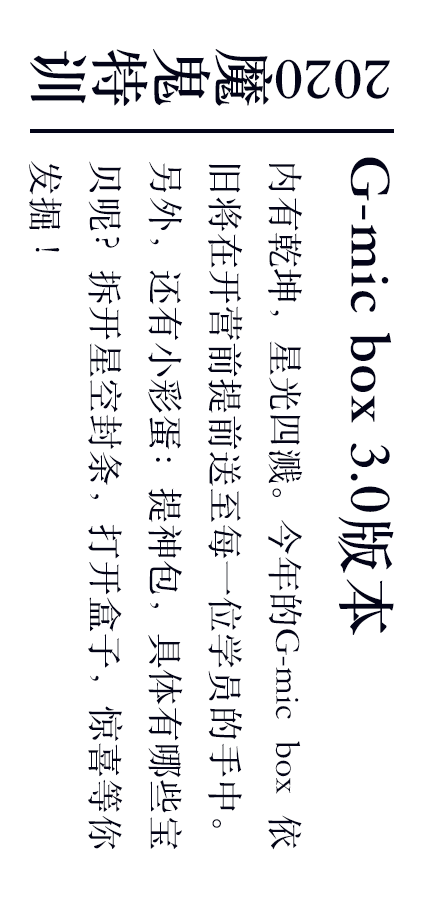 2020魔鬼特训
G-mic box 3.0版本
内有乾坤，星光四溅。今年的G-mic box 依
旧将在开营前提前送至每一位学员的手中。
另外，还有小彩蛋：提神包，具体有哪些宝
贝呢？拆开星空封条，打开盒子，惊喜等你
发掘！